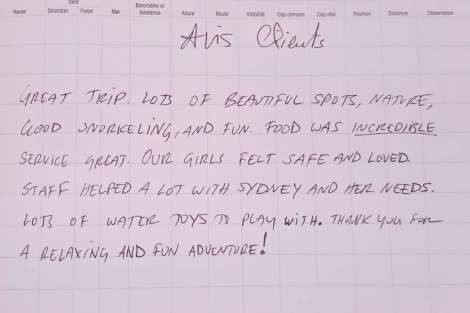 Vent
Baromètre et tendance
Heure Direction Force Mer Allure Route Visibilité Cap compas Cap vrai Position Distance Observation
Avis Clients
GREAT TRIP. LOTS OF BEAUTIFUL SPOTS, NATURE,
GOOD SNORKELING, AND FUN. FOOD WAS INCREDIBLE
SERVICE GREAT. OUR GIRLS FELT SAFE AND LOVED.
STAFF HELPED A LOT WITH SYDNEY AND HER NEEDS.
LOTS OF WATER TOYS TO PLAY WITH. THANK YOU FOR
A RELAXING AND FUN ADVENTURE!